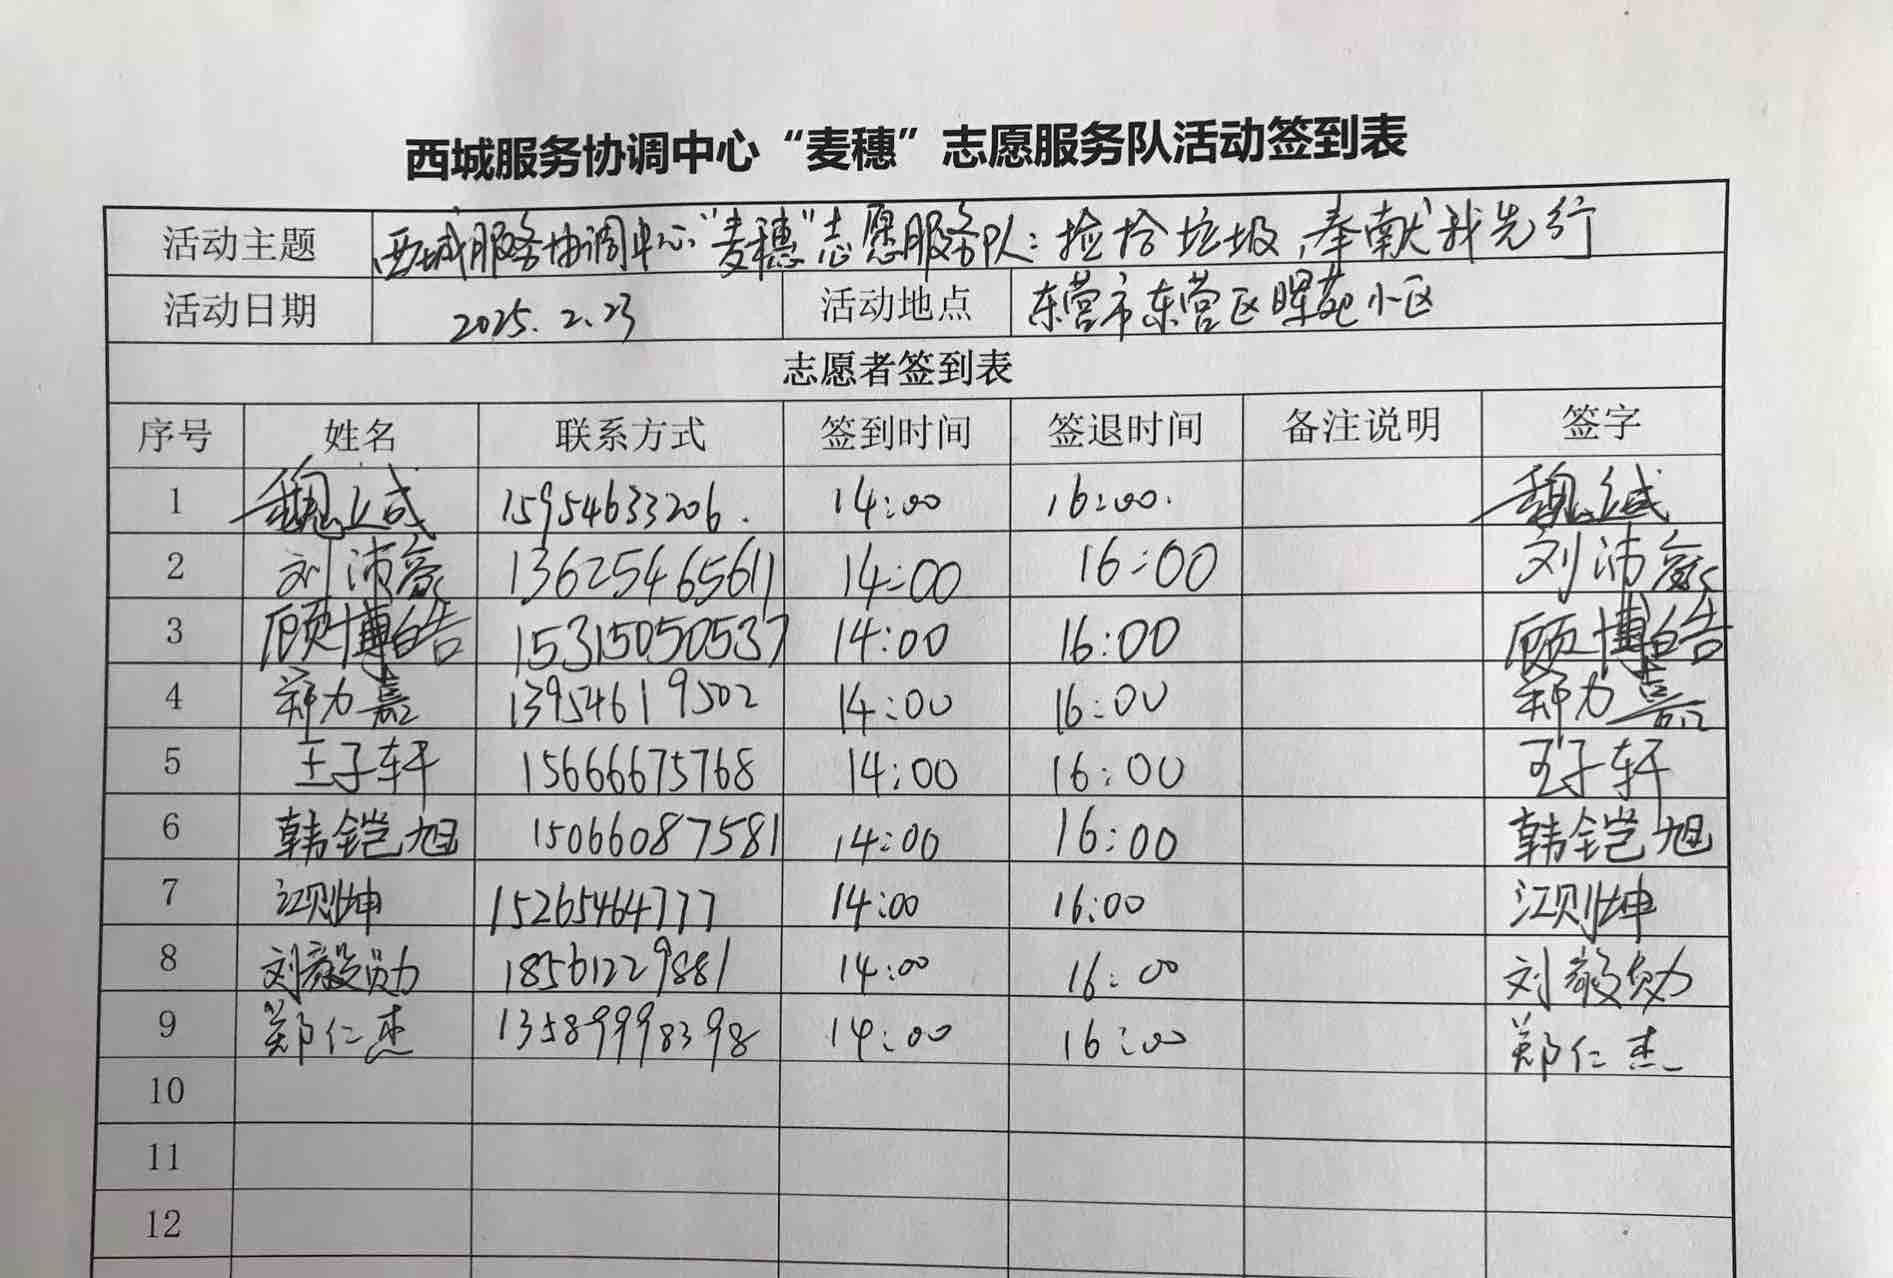 西城服务协调中心“麦穗”志愿服务队活动签到表
活动主题 西城服务协调中心“麦穗”志愿服务队：捡拾垃圾，奉献我先行
活动日期 2025.2.23 活动地点 东营市东营区晖苑小区
志愿者签到表
序号 姓名 联系方式 签到时间 签退时间 备注说明 签字
1 魏立成 15954633206. 14:00 16:00. 魏立成
2 刘沛 13625465611 14:00 16:00 刘沛
3 顾博皓 15315050537 14:00 16:00 顾博皓
4 郑力嘉 13954619502 14:00 16:00 郑力嘉
5 王子轩 15666675768 14:00 16:00 王子轩
6 韩铠旭 15066087581 14:00 16:00 韩铠旭
7 江则坤 15265464777 14:00 16:00 江则坤
8 刘毅勋 18561229881 14:00 16:00 刘毅勋
9 郑仁杰 13589998398 14:00 16:00 郑仁杰
10
11
12